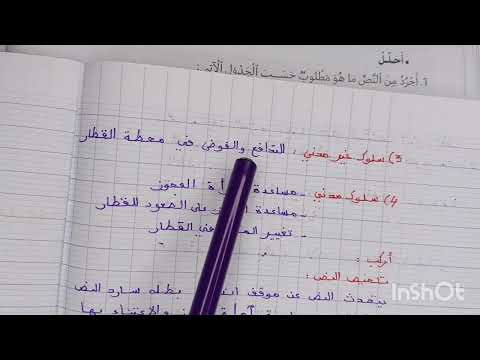 • أُحَلِّلُ
1. أُجَرِّدُ مِنَ النَّصِّ مَا هُوَ مَطْلُوبٌ حَسَبَ الْجَدْوَلِ الْآتِي:
3) سلوك غير مدني : التدافع والفوضى في محطة القطار
4) سلوك مدني - مساعدة العجوز
- مساعدة على الصعود للقطار
- تغيير في القطار
أركب :
تلخيص النص :
يتحدث النص عن موقف بطله سارد النص
والاعتناء بها
InShOt